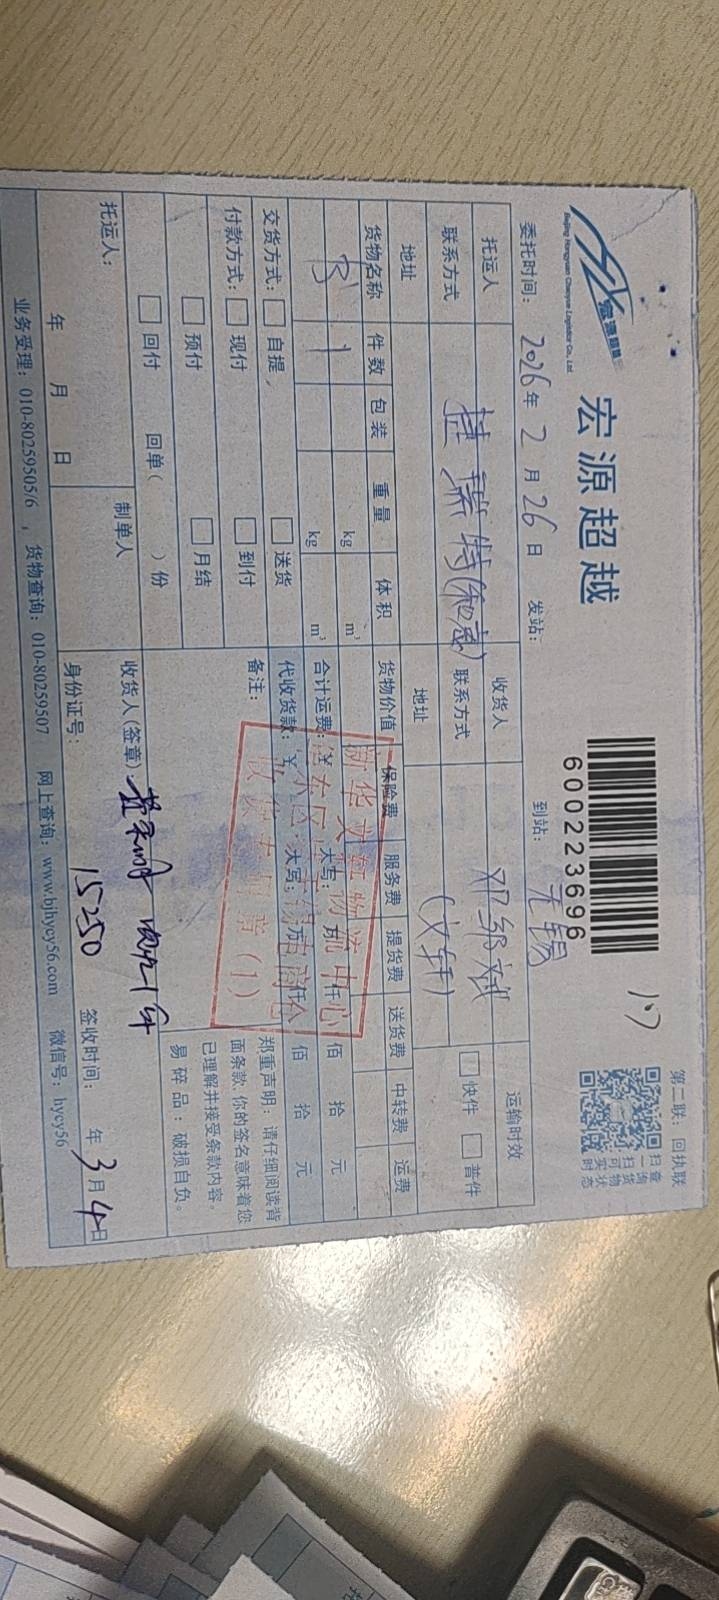 宏源超越
Beijing Hongyuan Chaoyue Logistics Co., Ltd.
宏源超越
600223696
17
第二联：回执联
扫一扫可实时
查询货物状态
委托时间：2026年2月26日 发站： 到站：无锡
托运人 收货人 邓邹斌 运输时效
联系方式 联系方式 (文轩) 快件 普件
地址 地址
货物名称 件数 包装 重量 体积 货物价值 保险费 服务费 提货费 送货费 中转费 运费
1 kg m³
kg m³ 合计运费：￥ 大写： 万 仟 佰 拾 元
交货方式： 自提 送货 代收货款：￥ 大写： 万 仟 佰 拾 元
付款方式： 现付 到付 备注：
预付 月结
回付 回单( )份
郑重声明：请仔细阅读背
面条款，你的签名意味着您
已理解并接受条款内容。
易碎品：破损自负。
新华文轩物流中心
收货专用章(1)
托运人： 制单人 收货人(签章)
15250
年 月 日 身份证号： 签收时间： 年3月4日
业务受理：010-80259505/6 ，货物查询：010-80259507 网上查询：www.bjhycy56.com 微信号：hycy56